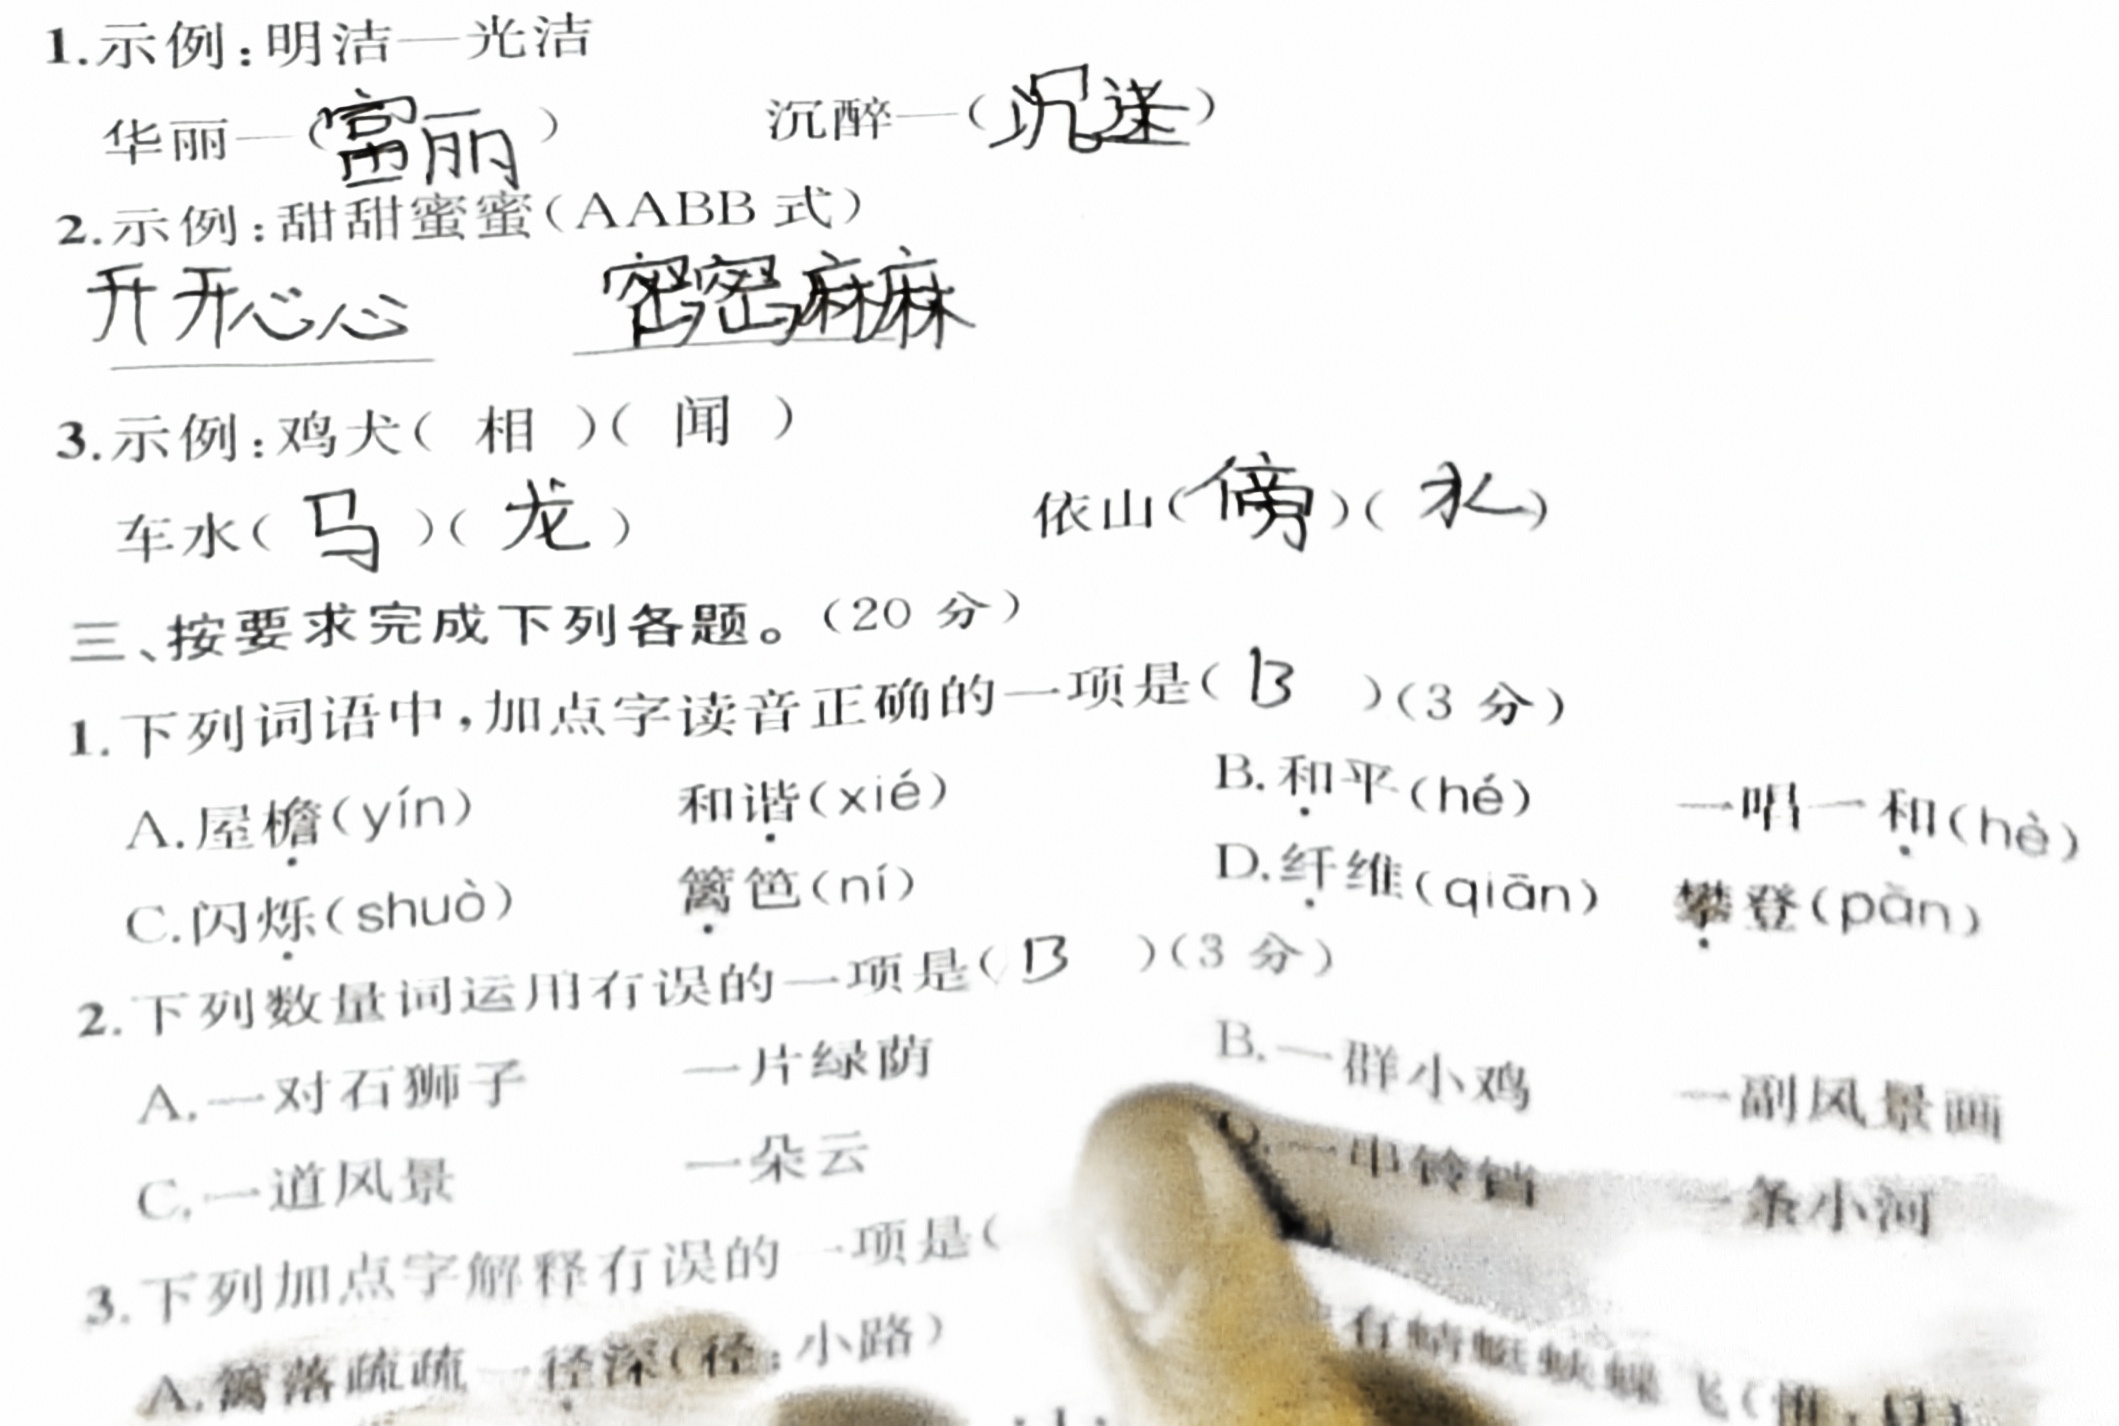 1.示例:明洁—光洁
华丽—(富丽) 沉醉—(沉迷)
2.示例:甜甜蜜蜜(AABB 式)
开开心心 密密麻麻
3.示例:鸡犬( 相 )( 闻 )
车水( 马 )( 龙 ) 依山( 傍 )( 水 )
三、按要求完成下列各题。(20 分)
1.下列词语中,加点字读音正确的一项是( B )(3 分)
A.屋檐(yín) 和谐(xié) B.和平(hé) 一唱一和(hè)
C.闪烁(shuò) 篱笆(ní) D.纤维(qiān) 攀登(pàn)
2.下列数量词运用有误的一项是( B )(3 分)
A.一对石狮子 一片绿荫 B.一群小鸡 一副风景画
C.一道风景 一朵云 一串铃铛 一条小河
3.下列加点字解释有误的一项是(
A.篱落疏疏一径深(径:小路) 有蜻蜓蛱蝶飞(惟: